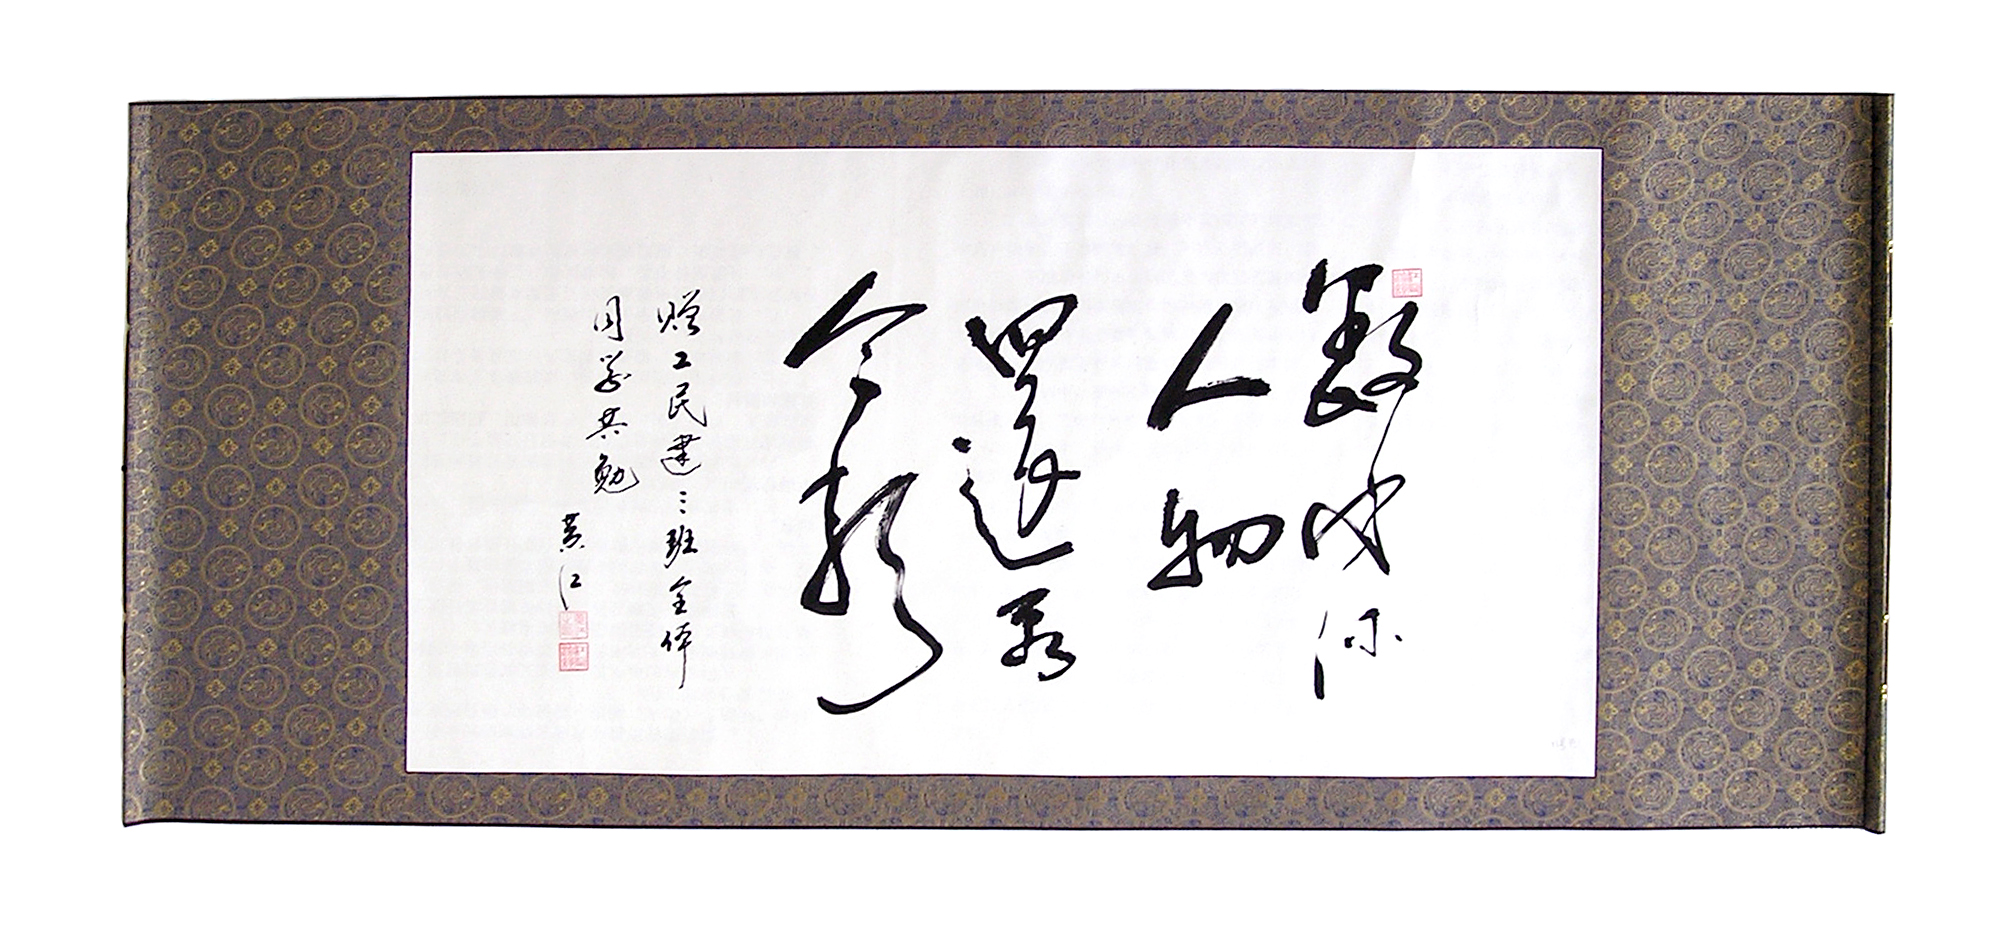 數风流
人物
還看
今朝
赠工民建三班全体
同学共勉
黄江